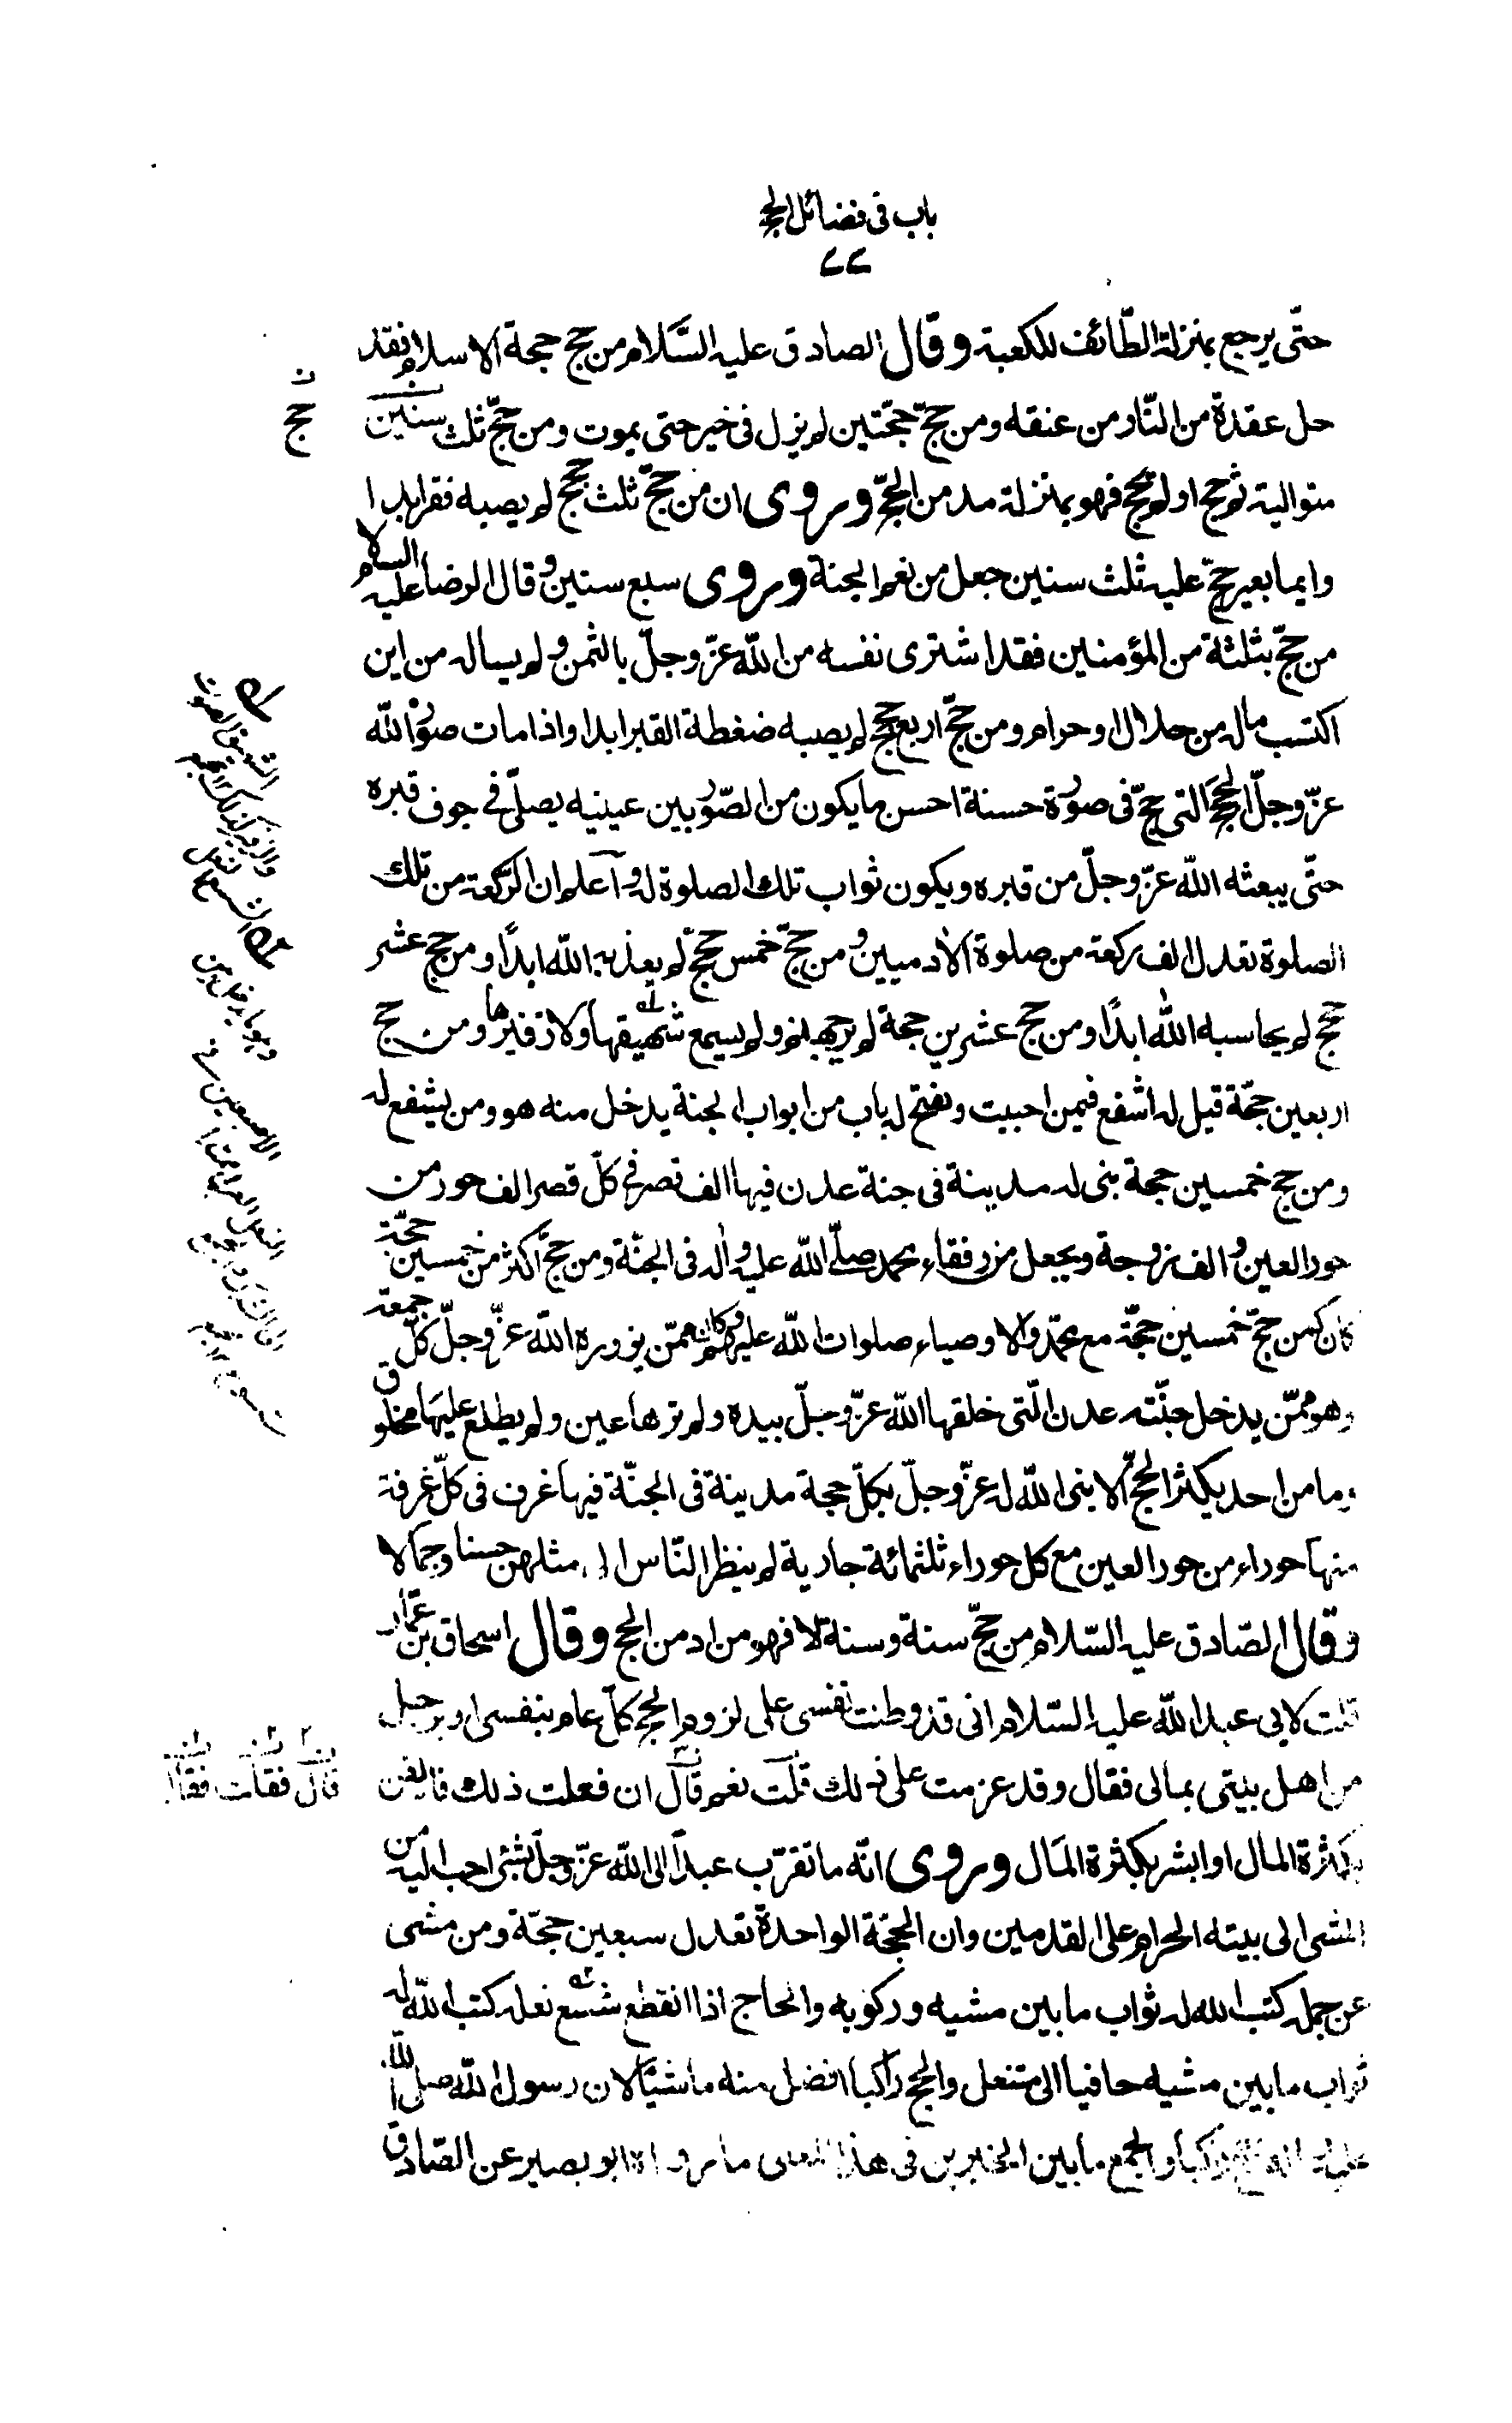 باب في فضائل الحج
٧٧
حتّى يرجع بمنزلة الطّائف للكعبة وقال الصادق عليه السَّلام من حج حجة الاسلام فقد
حل عقدة من النّار من عنقه ومن حجّ حجّتين لم يزل في خير حتى يموت ومن حجّ ثلث سنين
متوالية ثم حج او لم يحج فهو بمنزلة مدمن الحجّ وروى ان من حجّ ثلث حجج لم يصبه فقر ابدا
وايما بعير حجّ عليه ثلث سنين جعل من نعم الجنة وروى سبع سنين وقال الرضا عليه السلام
من حجّ بثلثة من المؤمنين فقد اشترى نفسه من اللّه عزّ وجلّ بالثمن ولم يساله من اين
اكتسب ماله من حلال او حرام ومن حجّ اربع حجج لم يصبه ضغطة القبر ابدا واذا مات صوّر اللّه
عزّ وجلّ الحجج التي حجّ في صورة حسنة احسن ما يكون من الصّور بين عينيه يصلّى في جوف قبره
حتّى يبعثه اللّه عزّ وجلّ من قبره ويكون ثواب تلك الصلوة له واعلم ان الرّكعة من تلك
الصلوة تعدل الف ركعة من صلوة الآدميين ومن حجّ خمس حجج لم يعذبه اللّه ابدًا ومن حج عشر
حجج لم يحاسبه اللّه ابدًا ومن حج عشرين حجة لم ير جهنم ولم يسمع شهيقها ولا زفيرها ومن حج
اربعين حجّة قيل له اشفع فيمن احببت ويفتح له باب من ابواب الجنة يدخل منه هو ومن يشفع له
ومن حج خمسين حجة بنى له مدينة في جنة عدن فيها الف قصر في كلّ قصر الف حور من
حور العين والف زوجة ويجعل من رفقاء محمد صلّى اللّه عليه واله في الجنّة ومن حجّ اكثر من خمسين حجّة
كان كمن حجّ خمسين حجّة مع محمّد والاوصياء صلوات اللّه عليهم وكان ممّن يزوره اللّه عزّ وجلّ كلّ جمعة
وهو ممّن يدخل جنّته عدن الّتي خلقها اللّه عزّ وجلّ بيده ولم ترها عين ولم يطلع عليها مخلوق
وما من احد يكثر الحجّ الا بنى اللّه له عزّ وجلّ بكلّ حجة مدينة في الجنّة فيها غرف في كلّ غرفة
منها حوراء من حور العين مع كل حوراء ثلثمائة جارية لم ينظر النّاس الى مثلهن حسنا وجمالا
وقال الصّادق عليه السّلام من حجّ سنة وسنة لا فهو من ادمن الحج وقال اسحاق بن عمّار
قلت لابي عبد اللّه عليه السّلام اني قد وطنت نفسي على لزوم الحج كلّ عام بنفسي او برجل
من اهل بيتي بمالي فقال وقد عزمت على ذلك قلت نعم قال ان فعلت ذلك فايقن
بكثرة المال او ابشر بكثرة المَال وروى انّه ما تقرّب عبد الى اللّه عزّ وجلّ بشئ احب اليه من
المشى الى بيته الحرام على القدمين وان الحجّة الواحدة تعدل سبعين حجّة ومن مشى
عن جمله كتب اللّه له ثواب ما بين مشيه وركوبه والحاج اذا انقطع شسع نعله كتب اللّه له
ثواب ما بين مشيه حافيا الى متنعل والحج راكبا افضل منه ماشيًا لان رسول اللّه صلى اللّه
عليه واله حج راكبا والجمع ما بين الخبرين في هذا المعنى ما رواه ابو بصير عن الصّادق
ن
حج
قال فقلت فقال